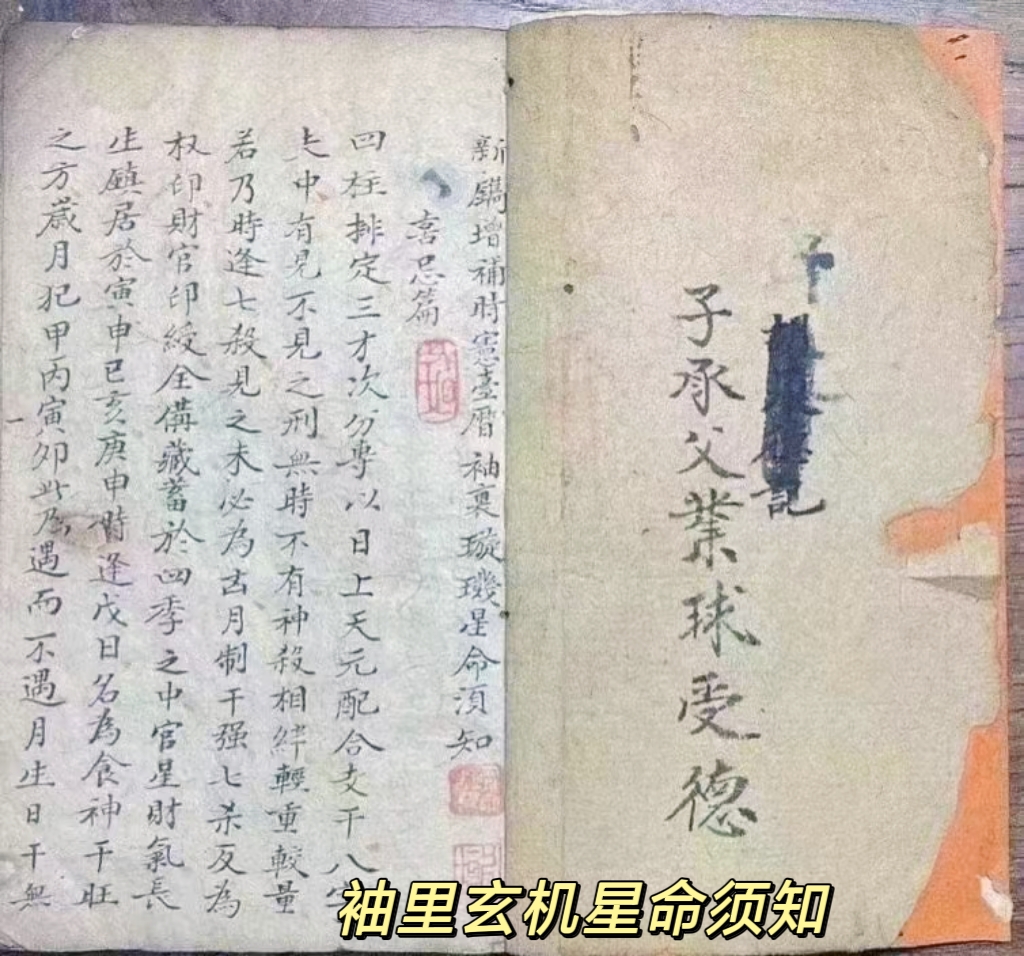 記
子承父業球受德
新鐫增補時憲臺曆袖裏璇璣星命湏知
喜忌篇
四柱排定三才次分專以日上天元配合支干八字
中有見不見之刑無時不有神殺相絆輕重較量
若乃時逢七殺見之未必為吉月制干强七杀反為
权印財官印綬全備藏蓄於四季之中官星財氣長
生鎮居於寅申巳亥庚申時逢戊日名為食神干旺
之方歲月犯甲丙寅卯此乃遇而不遇月生日干無
一
袖里玄机星命须知